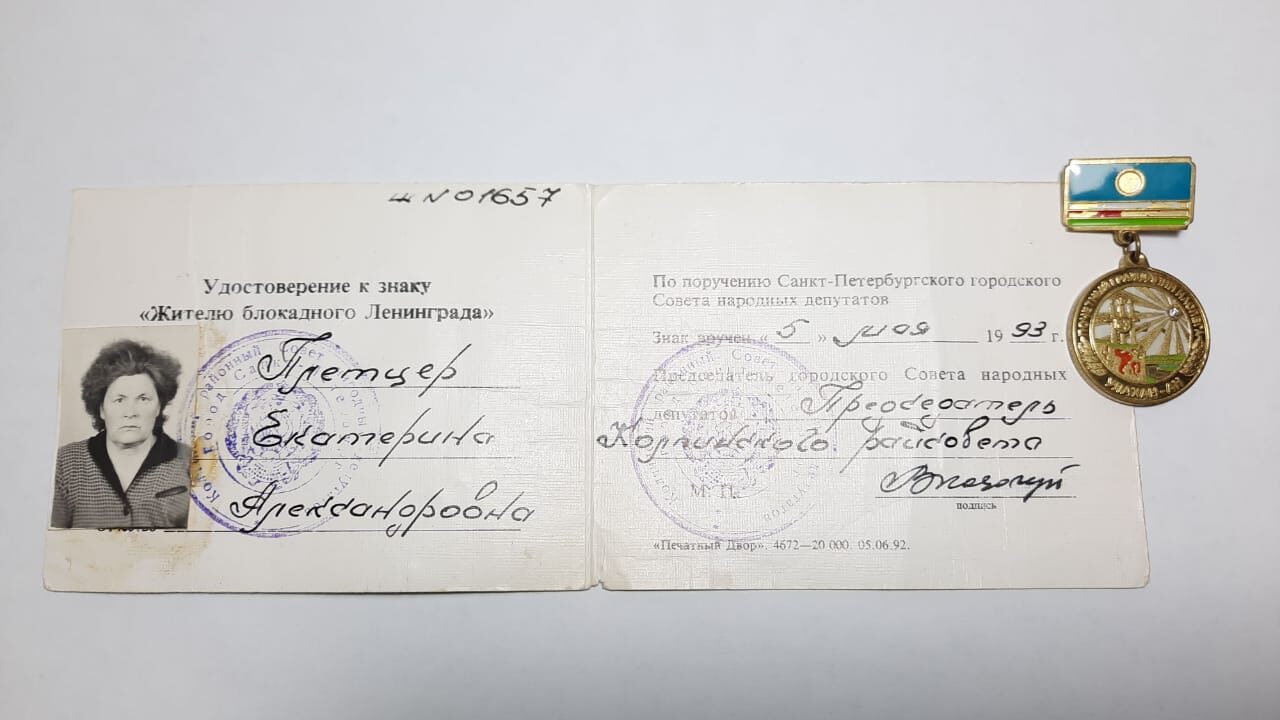 Щ N 01657
Удостоверение к знаку
«Жителю блокадного Ленинграда»
Претцер
Екатерина
Александровна
По поручению Санкт-Петербургского городского
Совета народных депутатов
Знак вручен «5» мая 1993 г.
Председатель городского Совета народных
депутатов Председатель
Колпинского райсовета
М. П.
подпись
«Печатный Двор». 4672—20 000. 05.06.92.